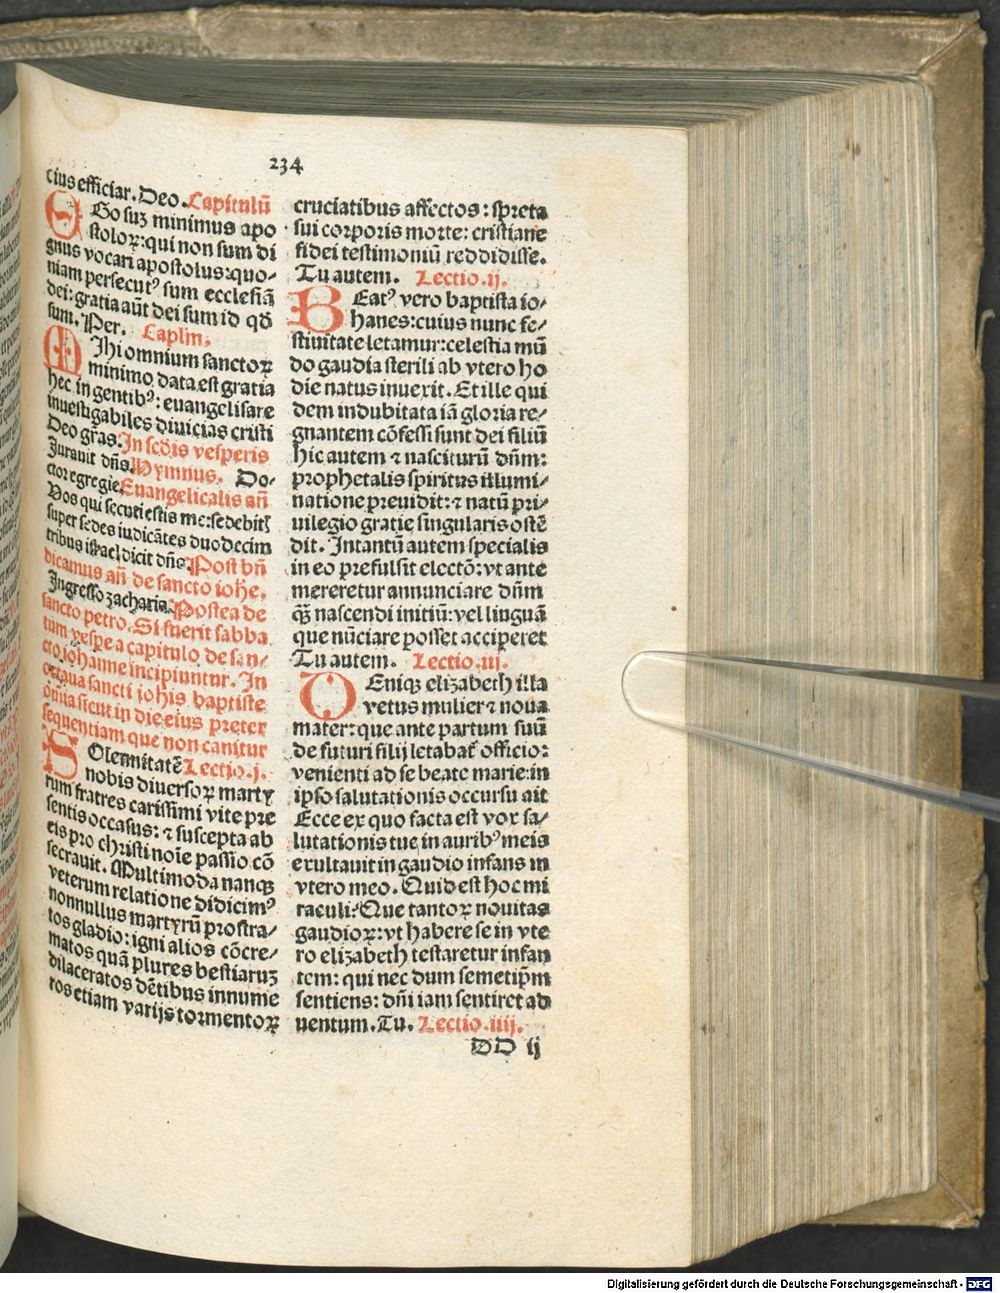 234
cius efficiar. Deo. Capitulū
EGo suꝫ minimus apo
stoloꝝ: qui non sum di
gnus vocari apostolus: quo-
niam persecutꝰ sum ecclesiā
dei: gratia aūt dei sum id qđ
sum. Per. Caplm.
MIhi omnium sanctoꝝ
minimo data est gratia
hec in gentibꝰ: euangelisare
inuestigabiles diuicias cristi
Deo gr̄as. In scdis vesperis
Jurauit dn̄s. Hymnus. Do-
ctor egregie. Euangelicalis an̄
Vos qui secuti estis me: sedebitꝭ
super sedes iudicātes duodecim
tribus isrl̄ dicit dn̄s. Post bn̄
dicamus an̄ de sancto iohe.
Ingresso zacharia. Postea de
sancto petro. Si fuerit sabba
tum vespe a capitulo de san-
cto johanne incipiuntur. In
octaua sancti johis baptiste
om̄ia sicut in die eius preter
sequentiam que non canitur
SOlennitatē Lectio.j.
nobis diuersoꝝ marty
rum fratres carissimi vite pre
sentis occasus: ⁊ suscepta ab
eis pro christi noīe passio cō
secrauit. Multimoda nanqꝫ
veterum relatione didicimꝰ
nonnullus martyrū prostra-
tos gladio: igni alios cōcre-
matos quā plures bestiaruꝫ
dilaceratos dētibus innume
ros etiam varijs tormentoꝝ
cruciatibus affectos: spreta
sui corporis morte: cristiane
fidei testimoniū reddidisse.
Tu autem. Lectio.ij.
BEatꝰ vero baptista io-
hanes: cuius nunc fe-
stiuitate letamur: celestia mū
do gaudia sterili ab vtero ho
die natus inuexit. Et ille qui
dem indubitata iā gloria re-
gnantem cōfessi sunt dei filiū
hic autem ⁊ nasciturū dn̄m:
prophetalis spiritus illumi-
natione preuidit: ⁊ natū pri-
uilegio gratie singularis ostē
dit. Intantū autem specialis
in eo prefulsit electō: vt ante
mereretur annunciare dn̄m
qꝫ̄ nascendi initiū: vel linguā
que nūciare posset acciperet
Tu autem. Lectio.iij.
DEniqꝫ elizabeth illa
vetus mulier ⁊ noua
mater: que ante partum suū
de futuri filij letabat̄ officio:
venienti ad se beate marie: in
ipso salutationis occursu ait
Ecce ex quo facta est vox sa-
lutationis tue in auribꝰ meis
exultauit in gaudio infans in
vtero meo. Quid est hoc mi
raculi? Que tantoꝝ nouitas
gaudioꝝ: vt habere se in vte
ro elizabeth testaretur infan
tem: qui nec dum semetip̄m
sentiens: dn̄i iam sentiret ad
uentum. Tu. Lectio.iiij.
DD ij
Digitalisierung gefördert durch die Deutsche Forschungsgemeinschaft - DFG